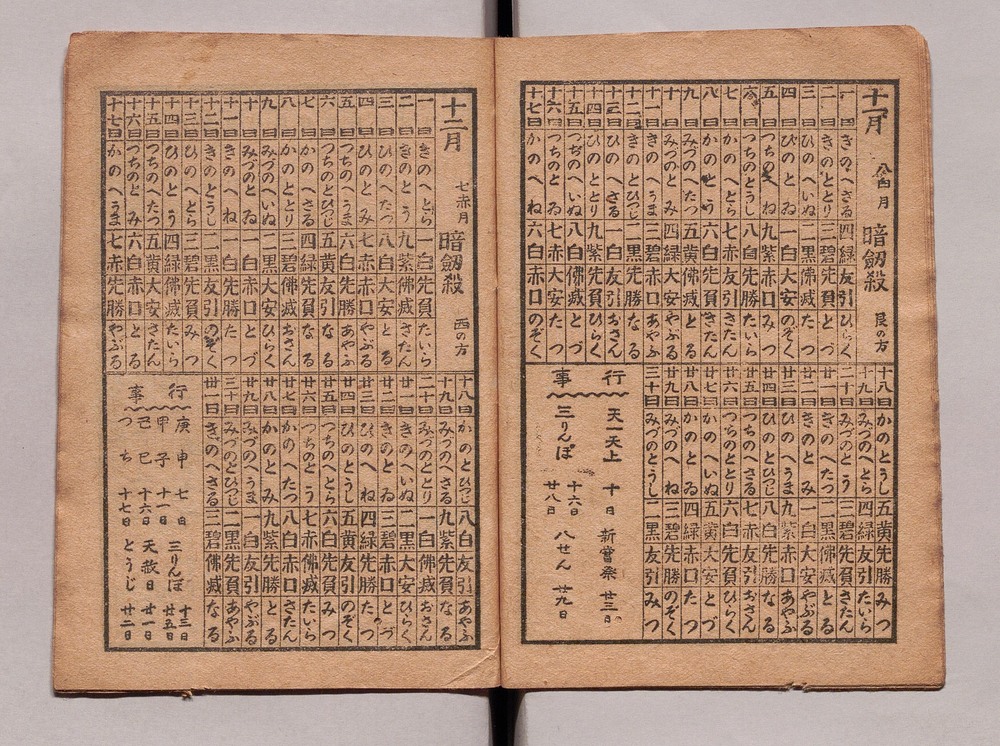 十一月 八白月 暗劔殺 艮の方
一日 きのへさる 四緑 友引 ひらく
二日 きのととり 三碧 先負 とづ
三日 ひのへいぬ 二黒 佛滅 たつ
四日 ひのとゐ 一白 大安 のぞく
五日 つちのへね 九紫 赤口 みつ
六日 つちのとうし 八白 先勝 たいら
七日 かのへとら 七赤 友引 さたん
八日 かのとう 六白 先負 さたん
九日 みづのへたつ 五黄 佛滅 とる
十日 みづのとみ 四緑 大安 やぶる
十一日 きのへうま 三碧 赤口 あやふ
十二日 きのとひつじ 二黒 先勝 なる
十三日 ひのへさる 一白 友引 おさん
十四日 ひのととり 九紫 先負 ひらく
十五日 つちのへいぬ 八白 佛滅 とづ
十六日 つちのとゐ 七赤 大安 たつ
十七日 かのへね 六白 赤口 のぞく
十八日 かのとうし 五黄 先勝 みつ
十九日 みづのへとら 四緑 友引 たいら
二十日 みづのとう 三碧 先負 さたん
廿一日 きのへたつ 二黒 佛滅 とる
廿二日 きのとみ 一白 大安 やぶる
廿三日 ひのへうま 九紫 赤口 あやふ
廿四日 ひのとひつじ 八白 先勝 なる
廿五日 つちのへさる 七赤 友引 おさん
廿六日 つちのととり 六白 先負 ひらく
廿七日 かのへいぬ 五黄 大安 とづ
廿八日 かのとゐ 四緑 赤口 たつ
廿九日 みづのへね 三碧 先勝 のぞく
三十日 みづのとうし 二黒 友引 みつ
行事
天一天上 十日 新嘗祭 廿三日
三りんぼ 十六日 廿八日 八せん 廿九日
十二月 七赤月 暗劔殺 西の方
一日 きのへとら 一白 先負 たいら
二日 きのとう 九紫 佛滅 さたん
三日 ひのへたつ 八白 大安 とる
四日 ひのとみ 七赤 赤口 やぶる
五日 つちのへうま 六白 先勝 あやふ
六日 つちのとひつじ 五黄 友引 なる
七日 かのへさる 四緑 先負 なる
八日 かのととり 三碧 佛滅 おさん
九日 みづのへいぬ 二黒 大安 ひらく
十日 みづのとゐ 一白 赤口 とづ
十一日 きのへね 一白 先勝 たつ
十二日 きのとうし 二黒 友引 のぞく
十三日 ひのへとら 三碧 先負 みつ
十四日 ひのとう 四緑 佛滅 たいら
十五日 つちのへたつ 五黄 大安 さたん
十六日 つちのとみ 六白 赤口 とる
十七日 かのへうま 七赤 先勝 やぶる
十八日 かのとひつじ 八白 友引 あやふ
十九日 みづのへさる 九紫 先負 なる
二十日 みづのととり 一白 佛滅 おさん
廿一日 きのへいぬ 二黒 大安 ひらく
廿二日 きのとゐ 三碧 赤口 とづ
廿三日 ひのへね 四緑 先勝 たつ
廿四日 ひのとうし 五黄 友引 のぞく
廿五日 つちのへとら 六白 先負 みつ
廿六日 つちのとう 七赤 佛滅 たいら
廿七日 かのへたつ 八白 赤口 さたん
廿八日 かのとみ 九紫 先勝 とる
廿九日 みづのへうま 一白 友引 やぶる
三十日 みづのとひつじ 二黒 先負 あやふ
卅一日 きのへさる 三碧 佛滅 なる
行事
庚申 七日 三りんぼ 十三日
甲子 十一日 廿五日
己巳 十六日 天赦日 廿一日
つち 十七日 とうじ 廿二日